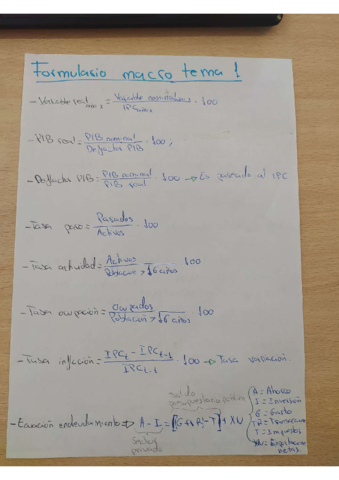 Formulario macro tema 1
- Variable real año t = Variable nominal año t / IPC año t · 100
- PIB real = PIB nominal / Deflactor PIB · 100;
- Deflactor PIB = PIB nominal / PIB real · 100 → Es parecido al IPC
- Tasa paro = Parados / Activos · 100
- Tasa actividad = Activos / Población > 16 años · 100
- Tasa ocupación = Ocupados / Población > 16 años · 100
- Tasa inflación = IPCt - IPCt-1 / IPCt-1 · 100 → Tasa variación
saldo presupuestario público
- Ecuación endeudamiento ⇒ A - I = [(G+TR) - T] + XN
saldo privado
A = Ahorro
I = Inversión
G = Gasto
TR = Transferencias
T = Impuestos
XN = Exportaciones netas